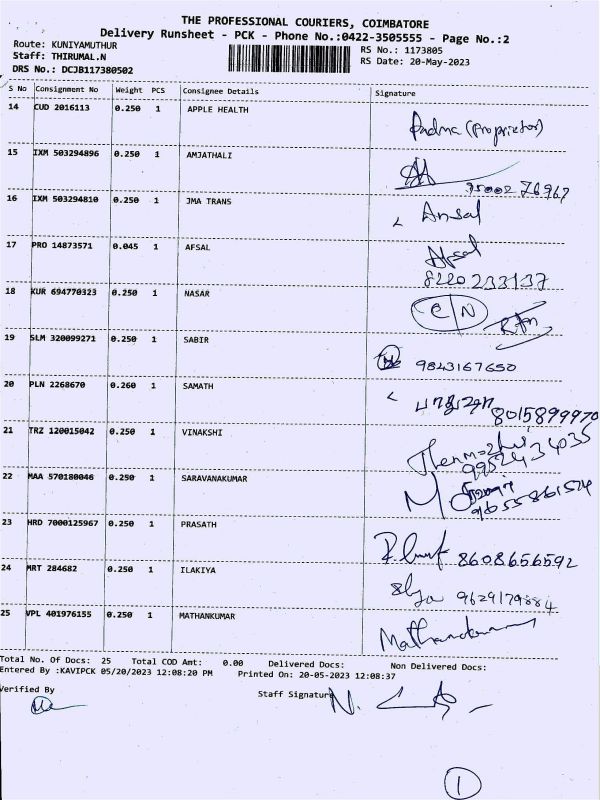 THE PROFESSIONAL COURIERS, COIMBATORE
Delivery Runsheet - PCK - Phone No.:0422-3505555 - Page No.:2
Route: KUNIYAMUTHUR RS No.: 1173805
Staff: THIRUMAL.N RS Date: 20-May-2023
DRS No.: DCJB117380502
S No Consignment No Weight PCS Consignee Details Signature
14 CUD 2016113 0.250 1 APPLE HEALTH Padma (Proprietor)
15 IXM 503294896 0.250 1 AMJATHALI
75002 76967
16 IXM 503294810 0.250 1 JMA TRANS Ansal
17 PRO 14873571 0.045 1 AFSAL Afsal
8220233137
18 KUR 694770323 0.250 1 NASAR C/N
19 SLM 320099271 0.250 1 SABIR 9843167650
20 PLN 2268670 0.260 1 SAMATH 8015899970
21 TRZ 120015042 0.250 1 VINAKSHI
9952434035
22 MAA 570180046 0.250 1 SARAVANAKUMAR
23 HRD 7000125967 0.250 1 PRASATH 8608656592
24 MRT 284682 0.250 1 ILAKIYA 9629179884
25 VPL 401976155 0.250 1 MATHANKUMAR Mathankumar
Total No. Of Docs: 25 Total COD Amt: 0.00 Delivered Docs: Non Delivered Docs:
Entered By :KAVIPCK 05/20/2023 12:08:20 PM Printed On: 20-05-2023 12:08:37
Verified By Staff Signature N.
1